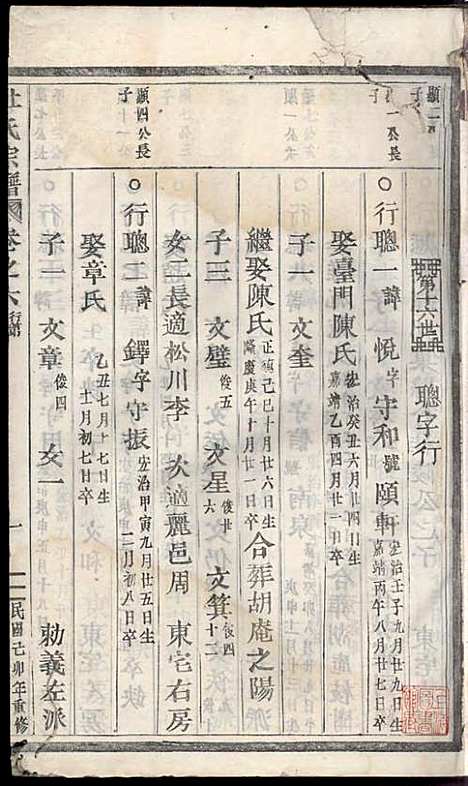 第十六世　聰字行
顯二
一公長
子
○行聰一諱悅字守和號頤軒弘治壬子九月廿九日生
嘉靖丙午八月廿七日卒
娶臺門陳氏弘治癸丑六月廿四日生
嘉靖乙酉四月廿二日卒
子一　文奎
繼娶陳氏正德己巳十月廿六日生
隆慶庚午十月廿一日卒合葬胡庵之陽
子三　文璧俊五　文星俊廿六　文箕俊四十二
女二長適松川李　次適麗邑周　東宅右房
顯四公長
子
○行聰二諱鐸字守振弘治甲寅九月廿五日生
二月初八日卒
娶章氏乙丑七月十七日生
十一月初七日卒
子一　文章俊四　女一　勅義左派
杜氏宗譜　卷之六　行第　一　民國己卯年重修